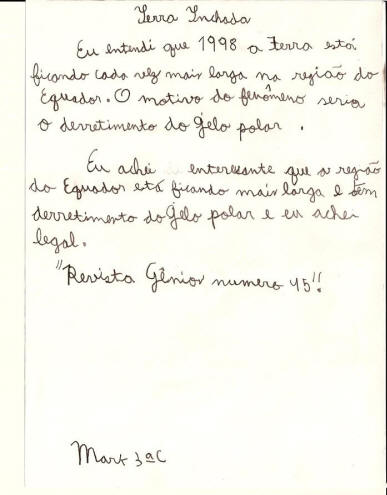 Terra Inchada
Eu entendi que 1998 a terra está
ficando cada vez mais larga na região do
Equador. O motivo do fenômeno seria
o derretimento do gelo polar .
Eu achei enteressante que a região
do Equador etá ficando mais larga e tem
derretimento do Gelo polar e eu achei
legal.
"Revista Gênios numero 45"!
Mark 3ªC